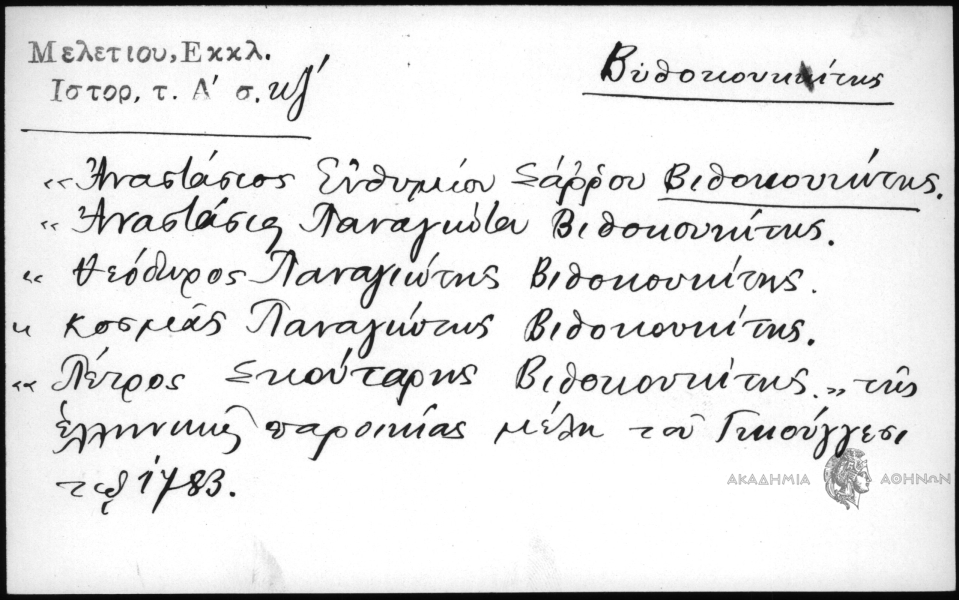 Μελετιου, Εκκλ.
Ιστορ, τ. Α' σ. κζ'
Βυθοκουκίτης
«Ἀναστάσιος Εὐθυμίου Σάρρου Βιθοκουκιώτης.
«Ἀναστάσις Παναγιώτου Βιθοκουκίτης.
« Θεόδωρος Παναγιώτης Βιθοκουκίτης.
« Κοσμᾶς Παναγιώτης Βιθοκουκίτης.
«« Πέτρος Σκούταρης Βιθοκουκίτης.,, τῆς
ἑλληνικῆς παροικίας μέλη τοῦ Γκιούγγεσι
τῷ 1783.
ΑΚΑΔΗΜΙΑ ΑΘΗΝΩΝ